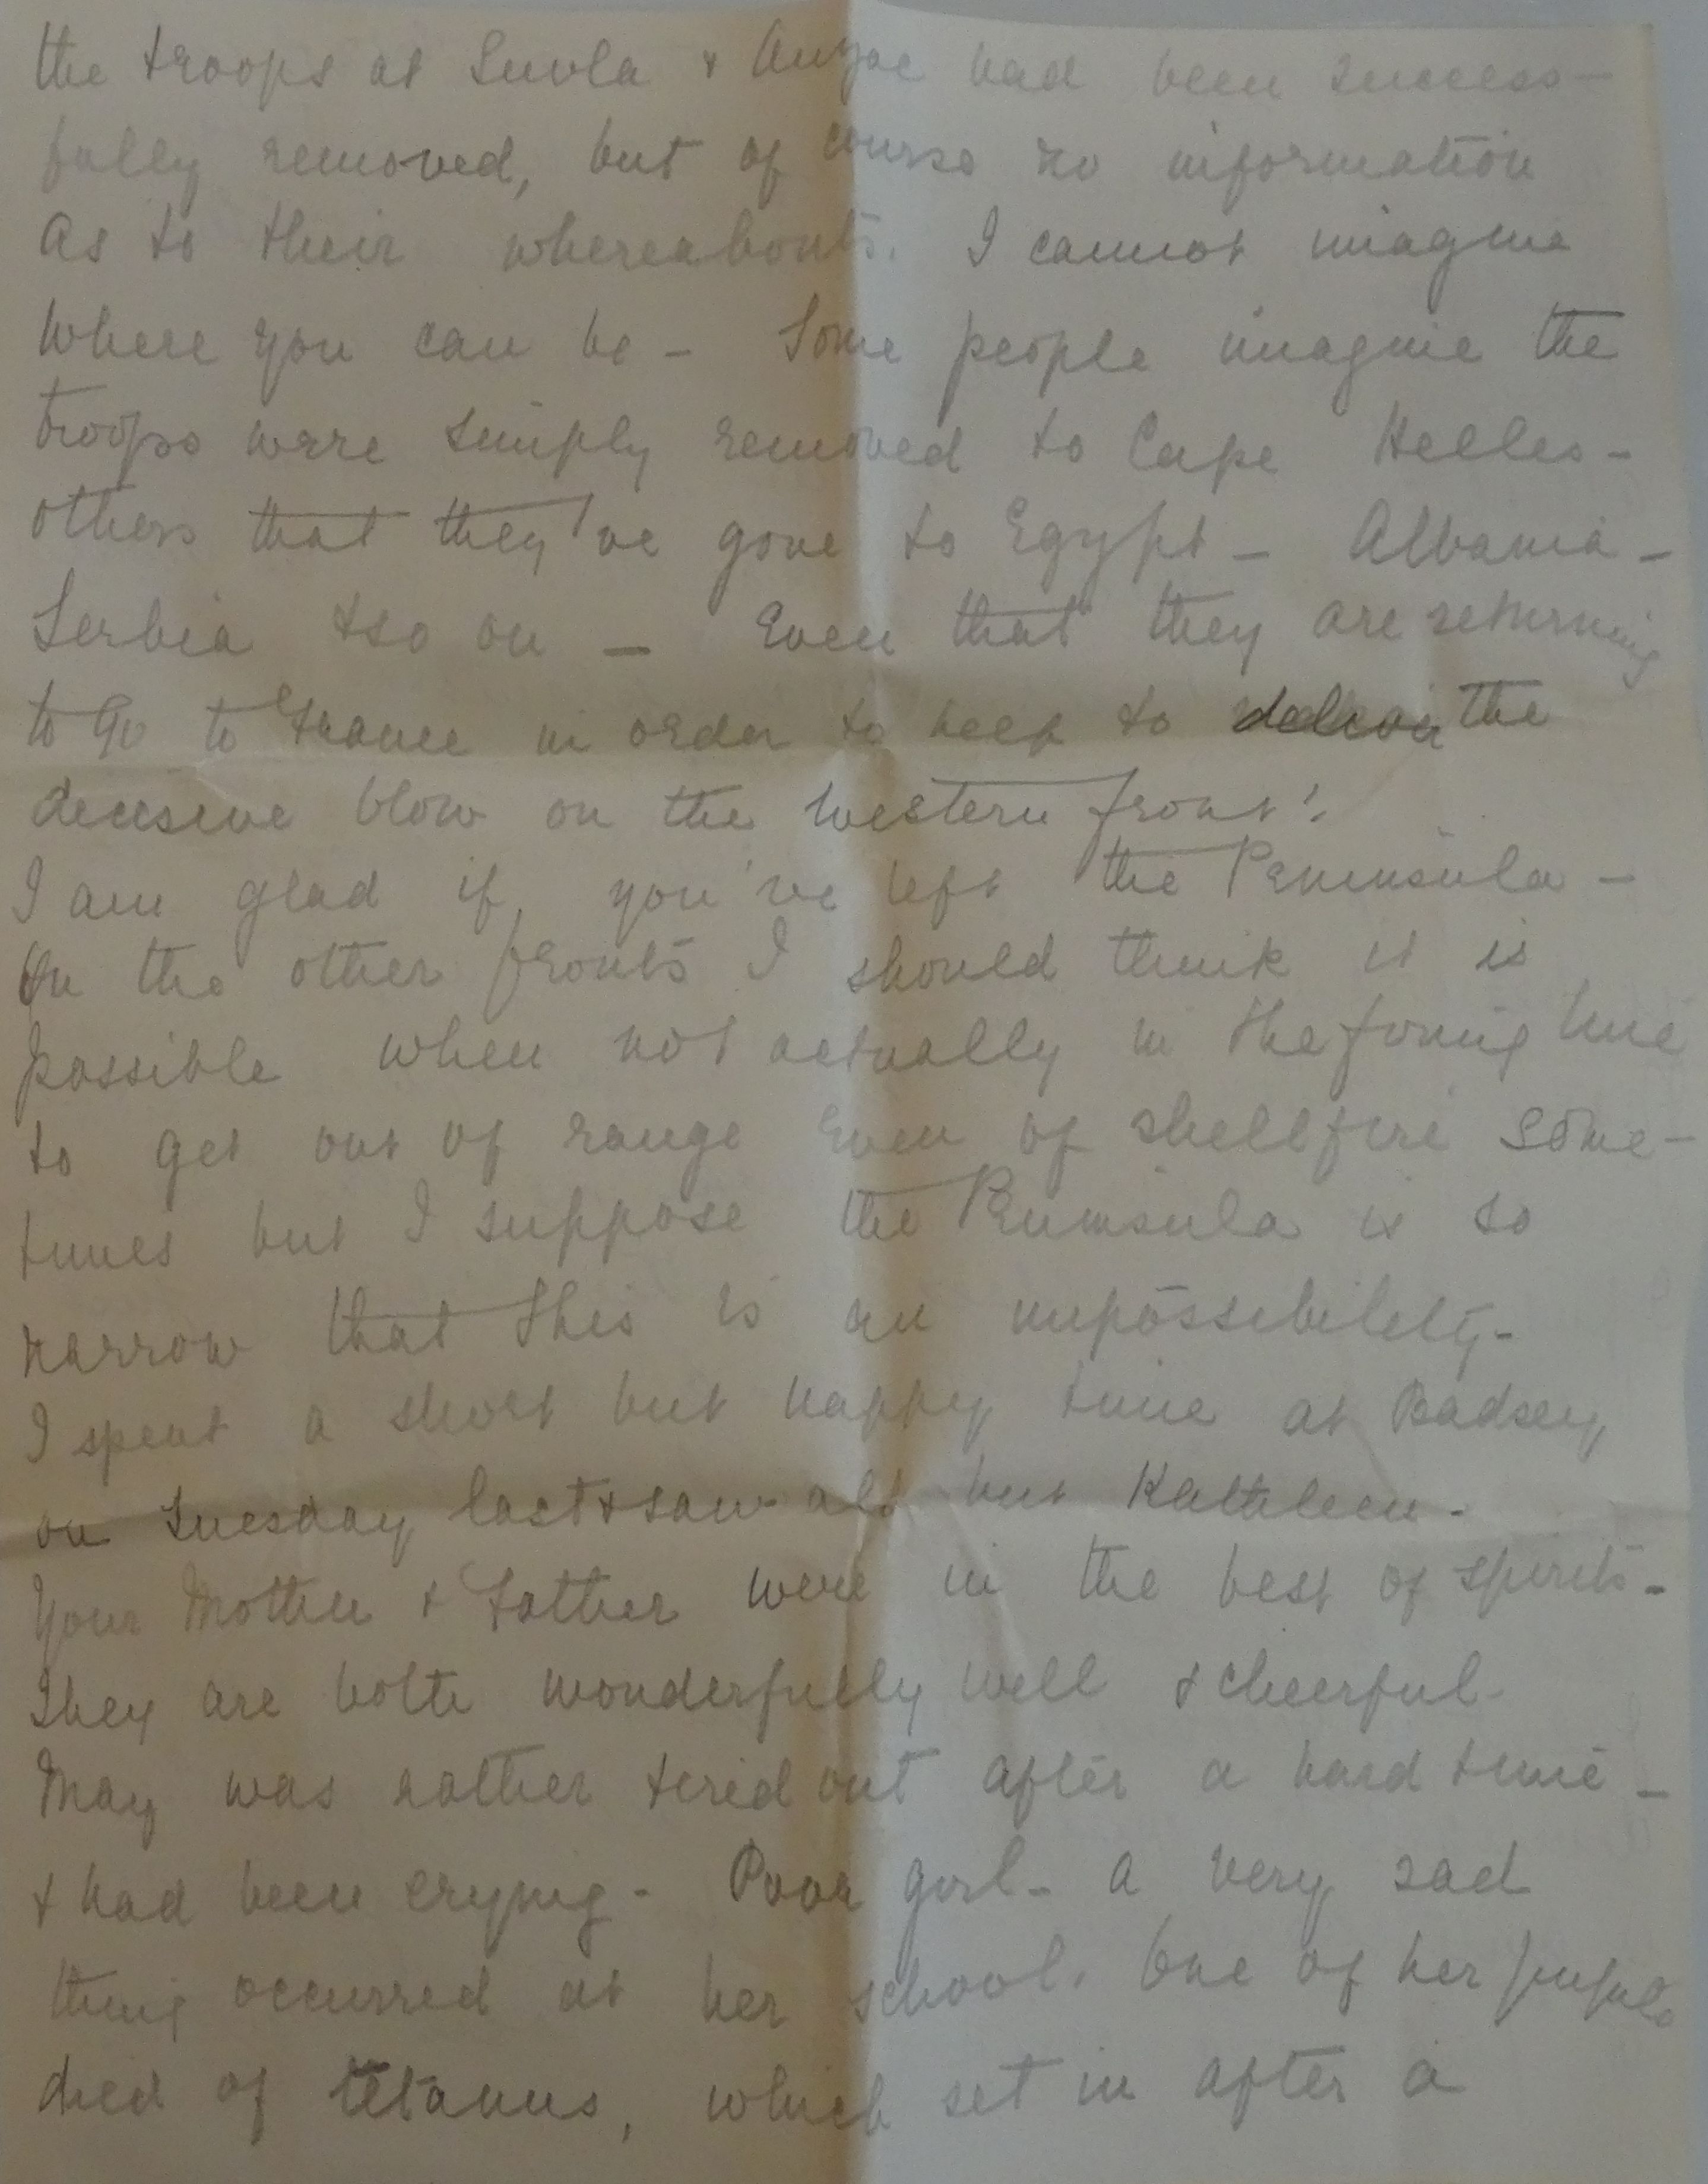 the troops at Suvla & Anzac had been success-
fully removed, but of course no information
as to their whereabouts. I cannot imagine
where you can be - Some people imagine the
troops were simply removed to Cape Helles -
others that they've gone to Egypt - Albania -
Serbia & so on - Even that they are returning
to go to France in order to help to deliver the
decisive blow on the Western front!
I am glad if you've left the Peninsula -
On the other fronts I should think it is
possible when not actually in the firing line
to get out of range even of shellfire some-
times but I suppose the Peninsula is so
narrow that this is an impossibility -
I spent a short but happy time at Badsey
on Tuesday last & saw all but Kathleen -
Your Mother & Father were in the best of spirits -
They are both wonderfully well & cheerful -
May was rather tired out after a hard time -
& had been crying - Poor girl - a very sad
thing occurred at her school. One of her pupils
died of tetanus, which set in after a